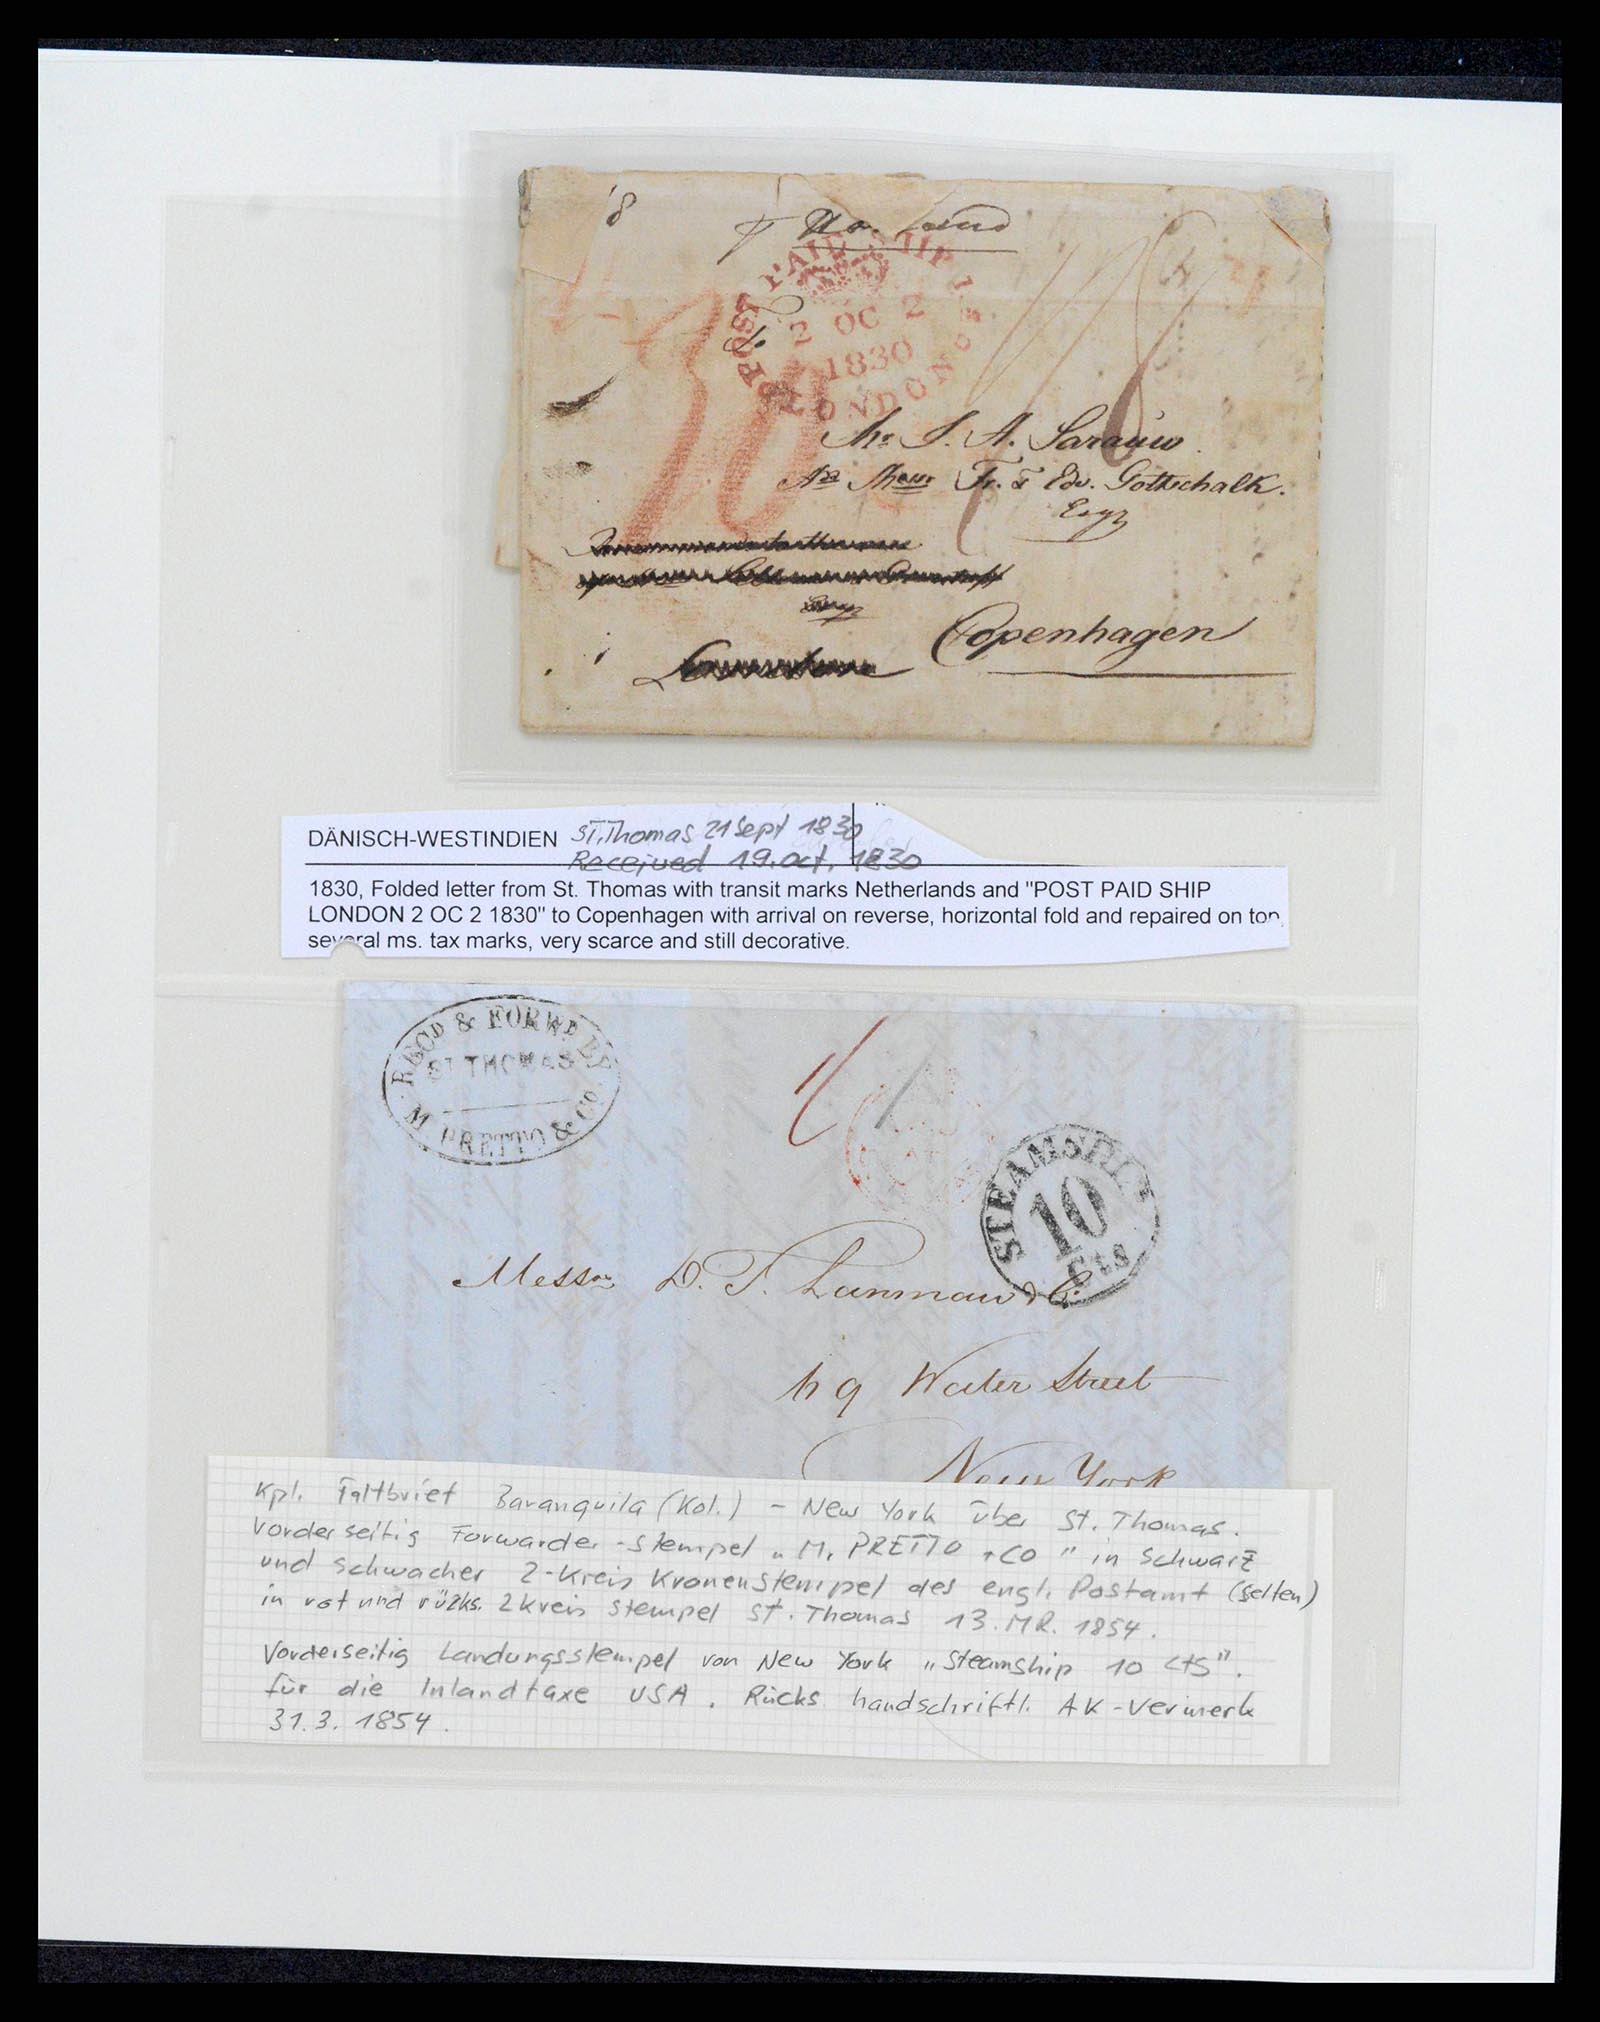 18
POST PAID SHIP L
2 OC 2
1830
LONDON
Mr. S. A. Sarauw
Fr. & Edv. Gottschalk.
Esqr
Copenhagen
DÄNISCH-WESTINDIEN St. Thomas 21 Sept 1830
Received 19. Oct. 1830
1830, Folded letter from St. Thomas with transit marks Netherlands and "POST PAID SHIP
LONDON 2 OC 2 1830" to Copenhagen with arrival on reverse, horizontal fold and repaired on top,
several ms. tax marks, very scarce and still decorative.
RECD & FORWD BY
ST THOMAS
M. PRETTO & Co.
STEAMSHIP
10
cts
Messrs D. T. Lanman & Co.
69 Water Street
New York
Kpl. Faltbrief Baranquila (Kol.) - New York über St. Thomas.
Vorderseitig Forwarder-Stempel „M. PRETTO + CO" in Schwarz
und schwacher 2-Kreis Kronenstempel des engl. Postamt (selten)
in rot und rücks. 2kreis Stempel St. Thomas 13. MR. 1854.
Vorderseitig Landungsstempel von New York „Steamship 10 cts".
für die Inlandtaxe USA. Rücks handschriftl. AK-Vermerk
31.3.1854.